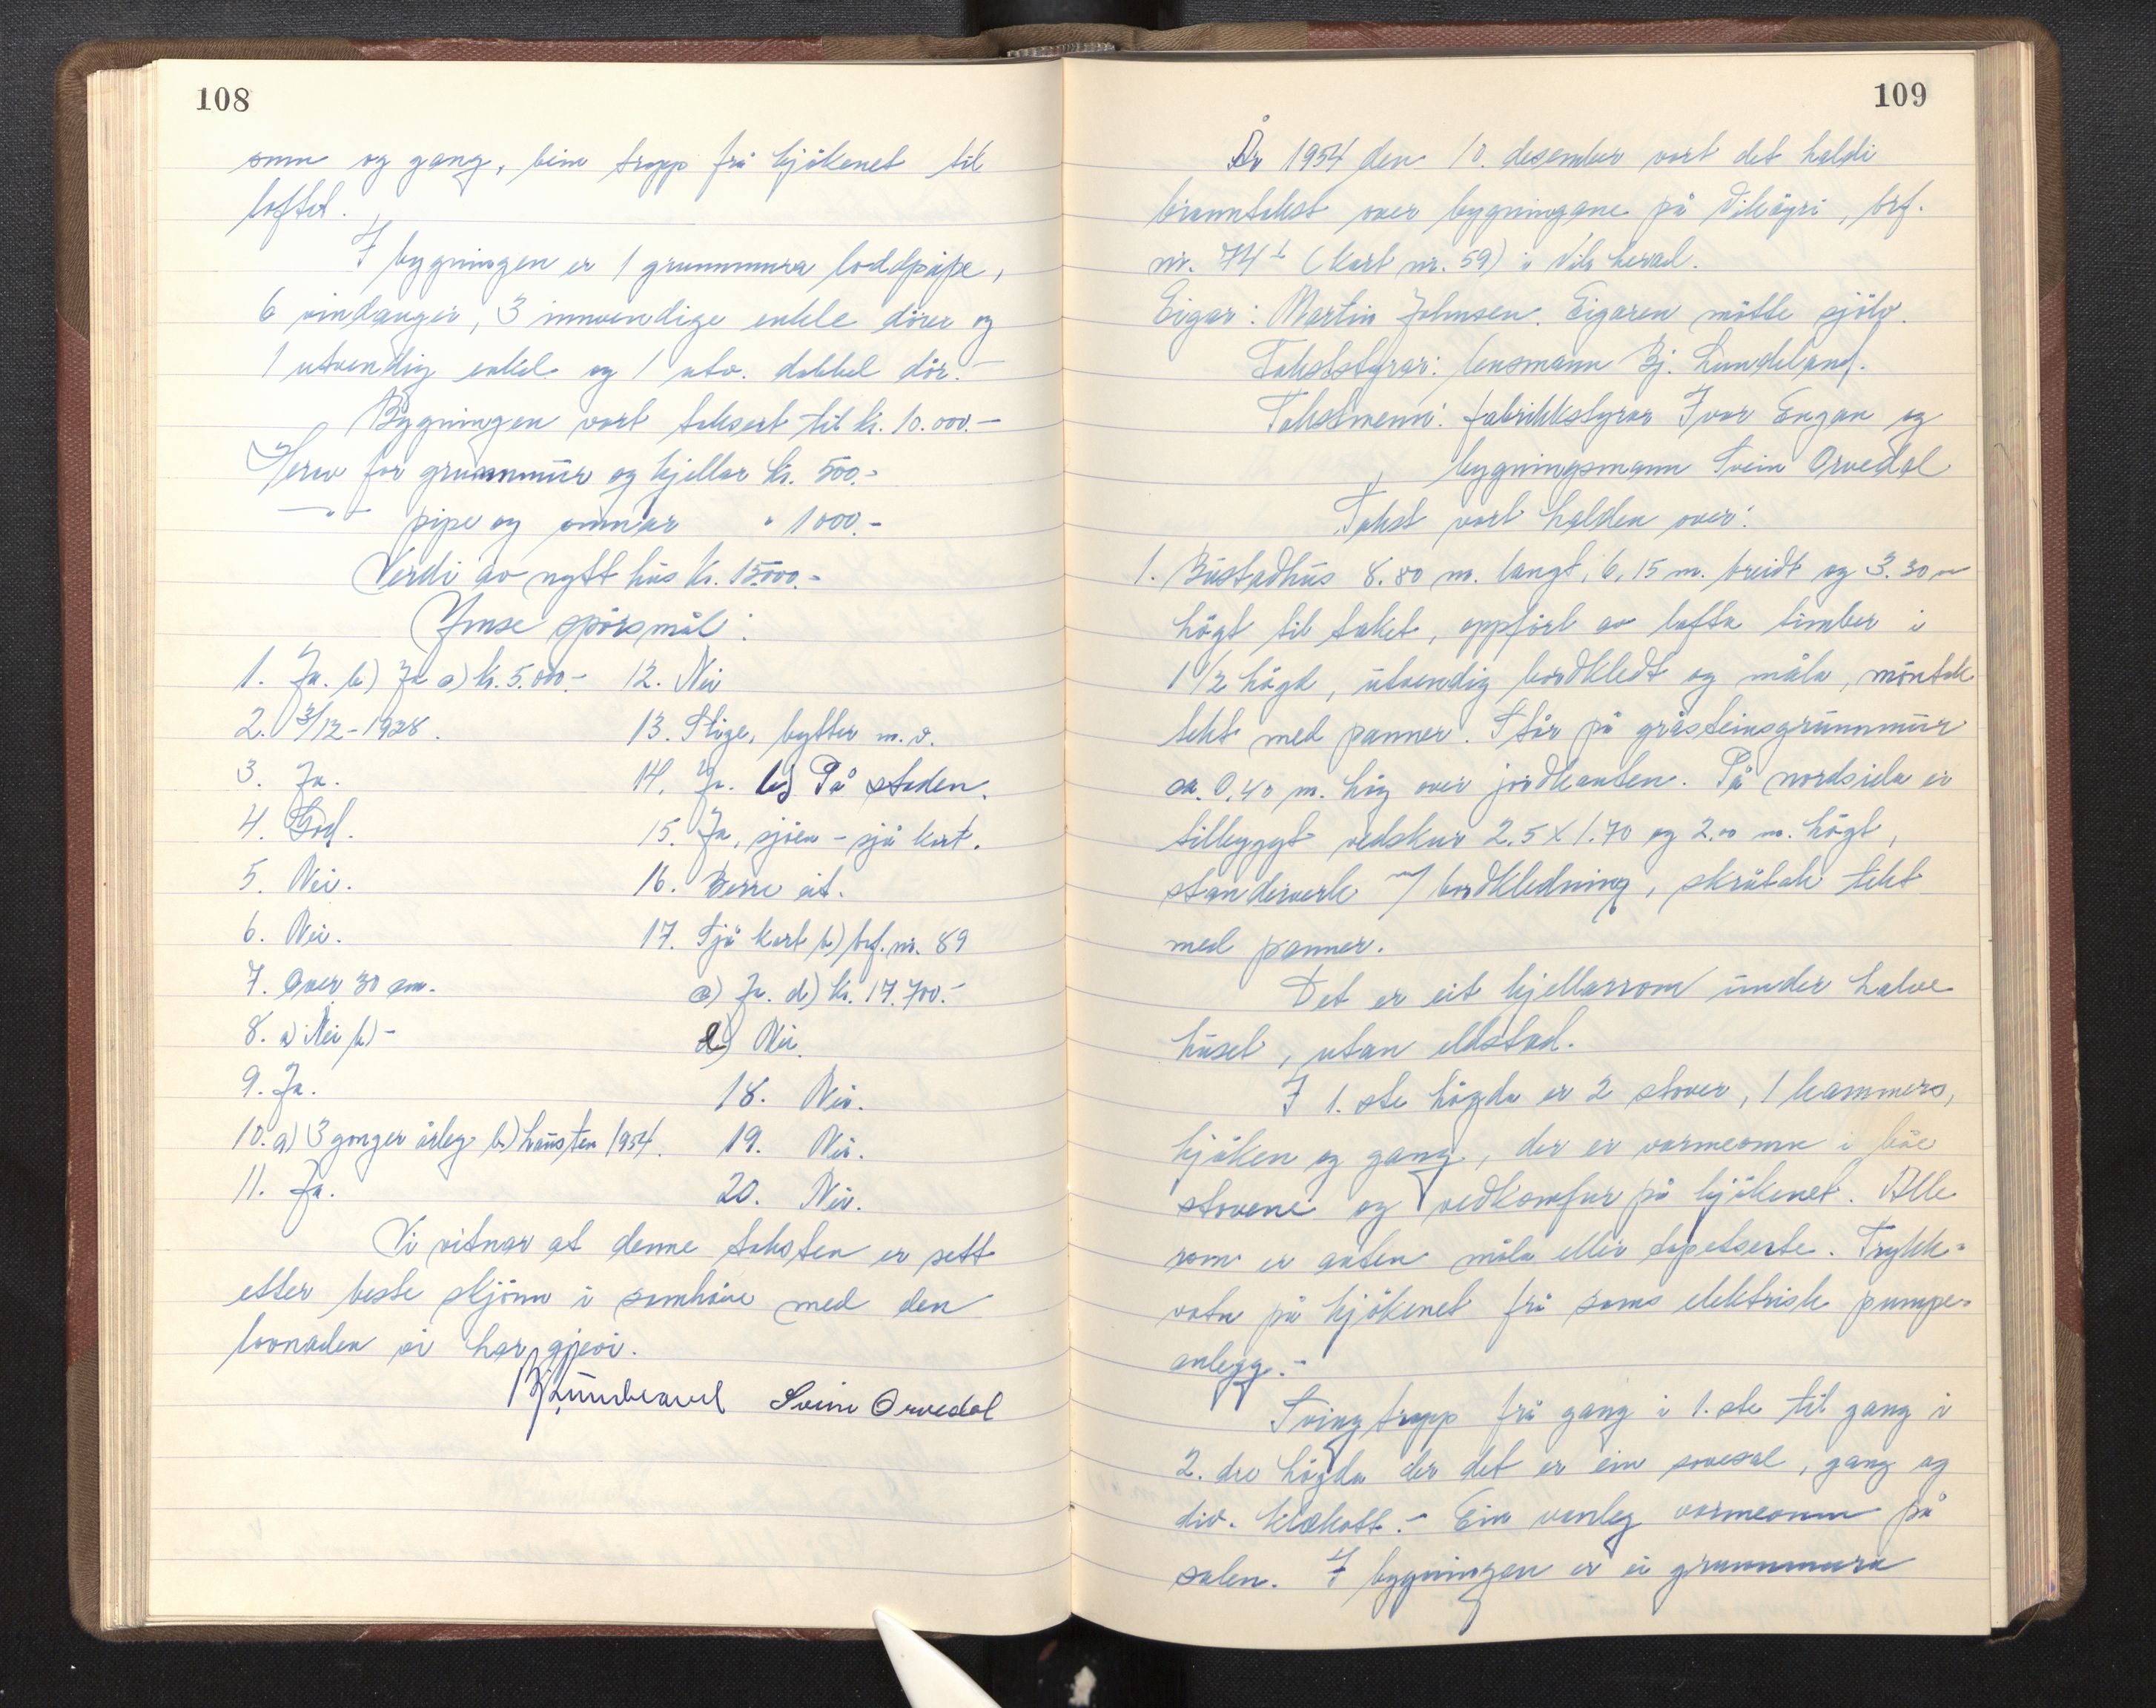 108
omn og gang, bein trapp frå kjökenet til
loftet.
I bygningen er 1 grunnmura loddpipe,
6 vindauger, 3 innvendige enkle dörer og
1 utvendig enkel og 1 utv. dobbel dör.-
Bygningen vart taksert til kr. 10.000.-
Herav for grunnmur og kjellar kr. 500.-
-"- pipe og omnar " 1000.-
Verdi av nytt hus kr. 15000.-
Ymse spörsmål:
1. Ja. b) Ja c) kr. 5.000.-
2. 3/12-1928.
3. Ja.
4. God.
5. Nei.
6. Nei.
7. Over 30 cm.
8. a) Nei b) -
9. Ja.
10. a) 3 gonger årleg b) hausten 1954.
11. Ja.
12. Nei
13. Stige, bytter m.v.
14. Ja. b) På staden.
15. Ja, sjöen - sjå kart.
16. Berre eit.
17. Sjå kart b) brf. nr. 89
c) Ja. d) kr. 17.700.-
e) Nei
18. Nei.
19. Nei.
20. Nei.
Vi vitnar at denne taksten er sett
etter beste skjönn i samhöve med den
lovnaden vi har gjevi.
Bj Lundeland Svein Orvedal
109
År 1954 den 10. desember vart det haldi
branntakst over bygningane på Vikøyri, brf.
nr. 74 b (kart nr. 59) i Vik herad.
Eigar: Martin Johnsen. Eigaren mötte sjölv.
Takststyrar: lensmann Bj. Lundeland.
Takstmenn: fabrikkstyrar Ivar Engan og
bygningsmann Svein Orvedal
Takst vart halden over:
1. Bustadhus 8.80 m. langt, 6,15 m. breidt og 3.30 m
högt til taket, oppfört av lafta timber i
1 1/2 högd, utvendig bordkledt og måla, möntak
tekt med panner. Står på gråsteinsgrunnmur
ca. 0,40 m. hög over jordkanten. På nordsida er
tilbyggt vedskur 2.5 x 1.70 og 2.00 m. högt,
standerverk m/ bordkledning, skråtak tekt
med panner.
Det er eit kjellarrom under halve
huset, utan eldstad.
I 1. ste högda er 2 stover, 1 kammers,
kjöken og gang, der er varmeomn i båe
stovene og vedkomfur på kjökenet. Alle
rom er anten måla eller tapetserte. Trykk-
vatn på kjökenet frå sams elektrisk pumpe-
anlegg.-
Svingtrapp frå gang i 1. ste til gang i
2. dre högda der det er ein sovesal, gang og
div. klekott.- Ein vanleg varmeomn på
salen. I bygningen er ei grunnmura